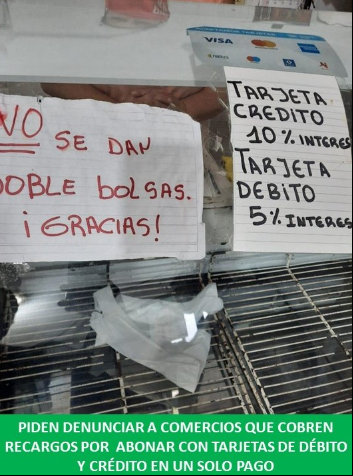 VISA
NO SE DAN
DOBLE bolSAS.
¡GRACIAS!
TARJETA
CREDITO
10% INTERES
TARJETA
DEBITO
5% INTERES
PIDEN DENUNCIAR A COMERCIOS QUE COBREN
RECARGOS POR ABONAR CON TARJETAS DE DÉBITO
Y CRÉDITO EN UN SOLO PAGO